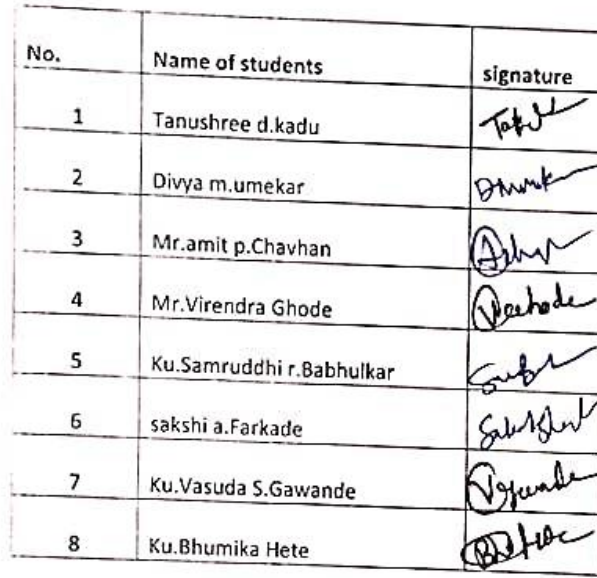 No. Name of students signature
1 Tanushree d.kadu
2 Divya m.umekar
3 Mr.amit p.Chavhan
4 Mr.Virendra Ghode
5 Ku.Samruddhi r.Babhulkar
6 sakshi a.Farkade
7 Ku.Vasuda S.Gawande
8 Ku.Bhumika Hete